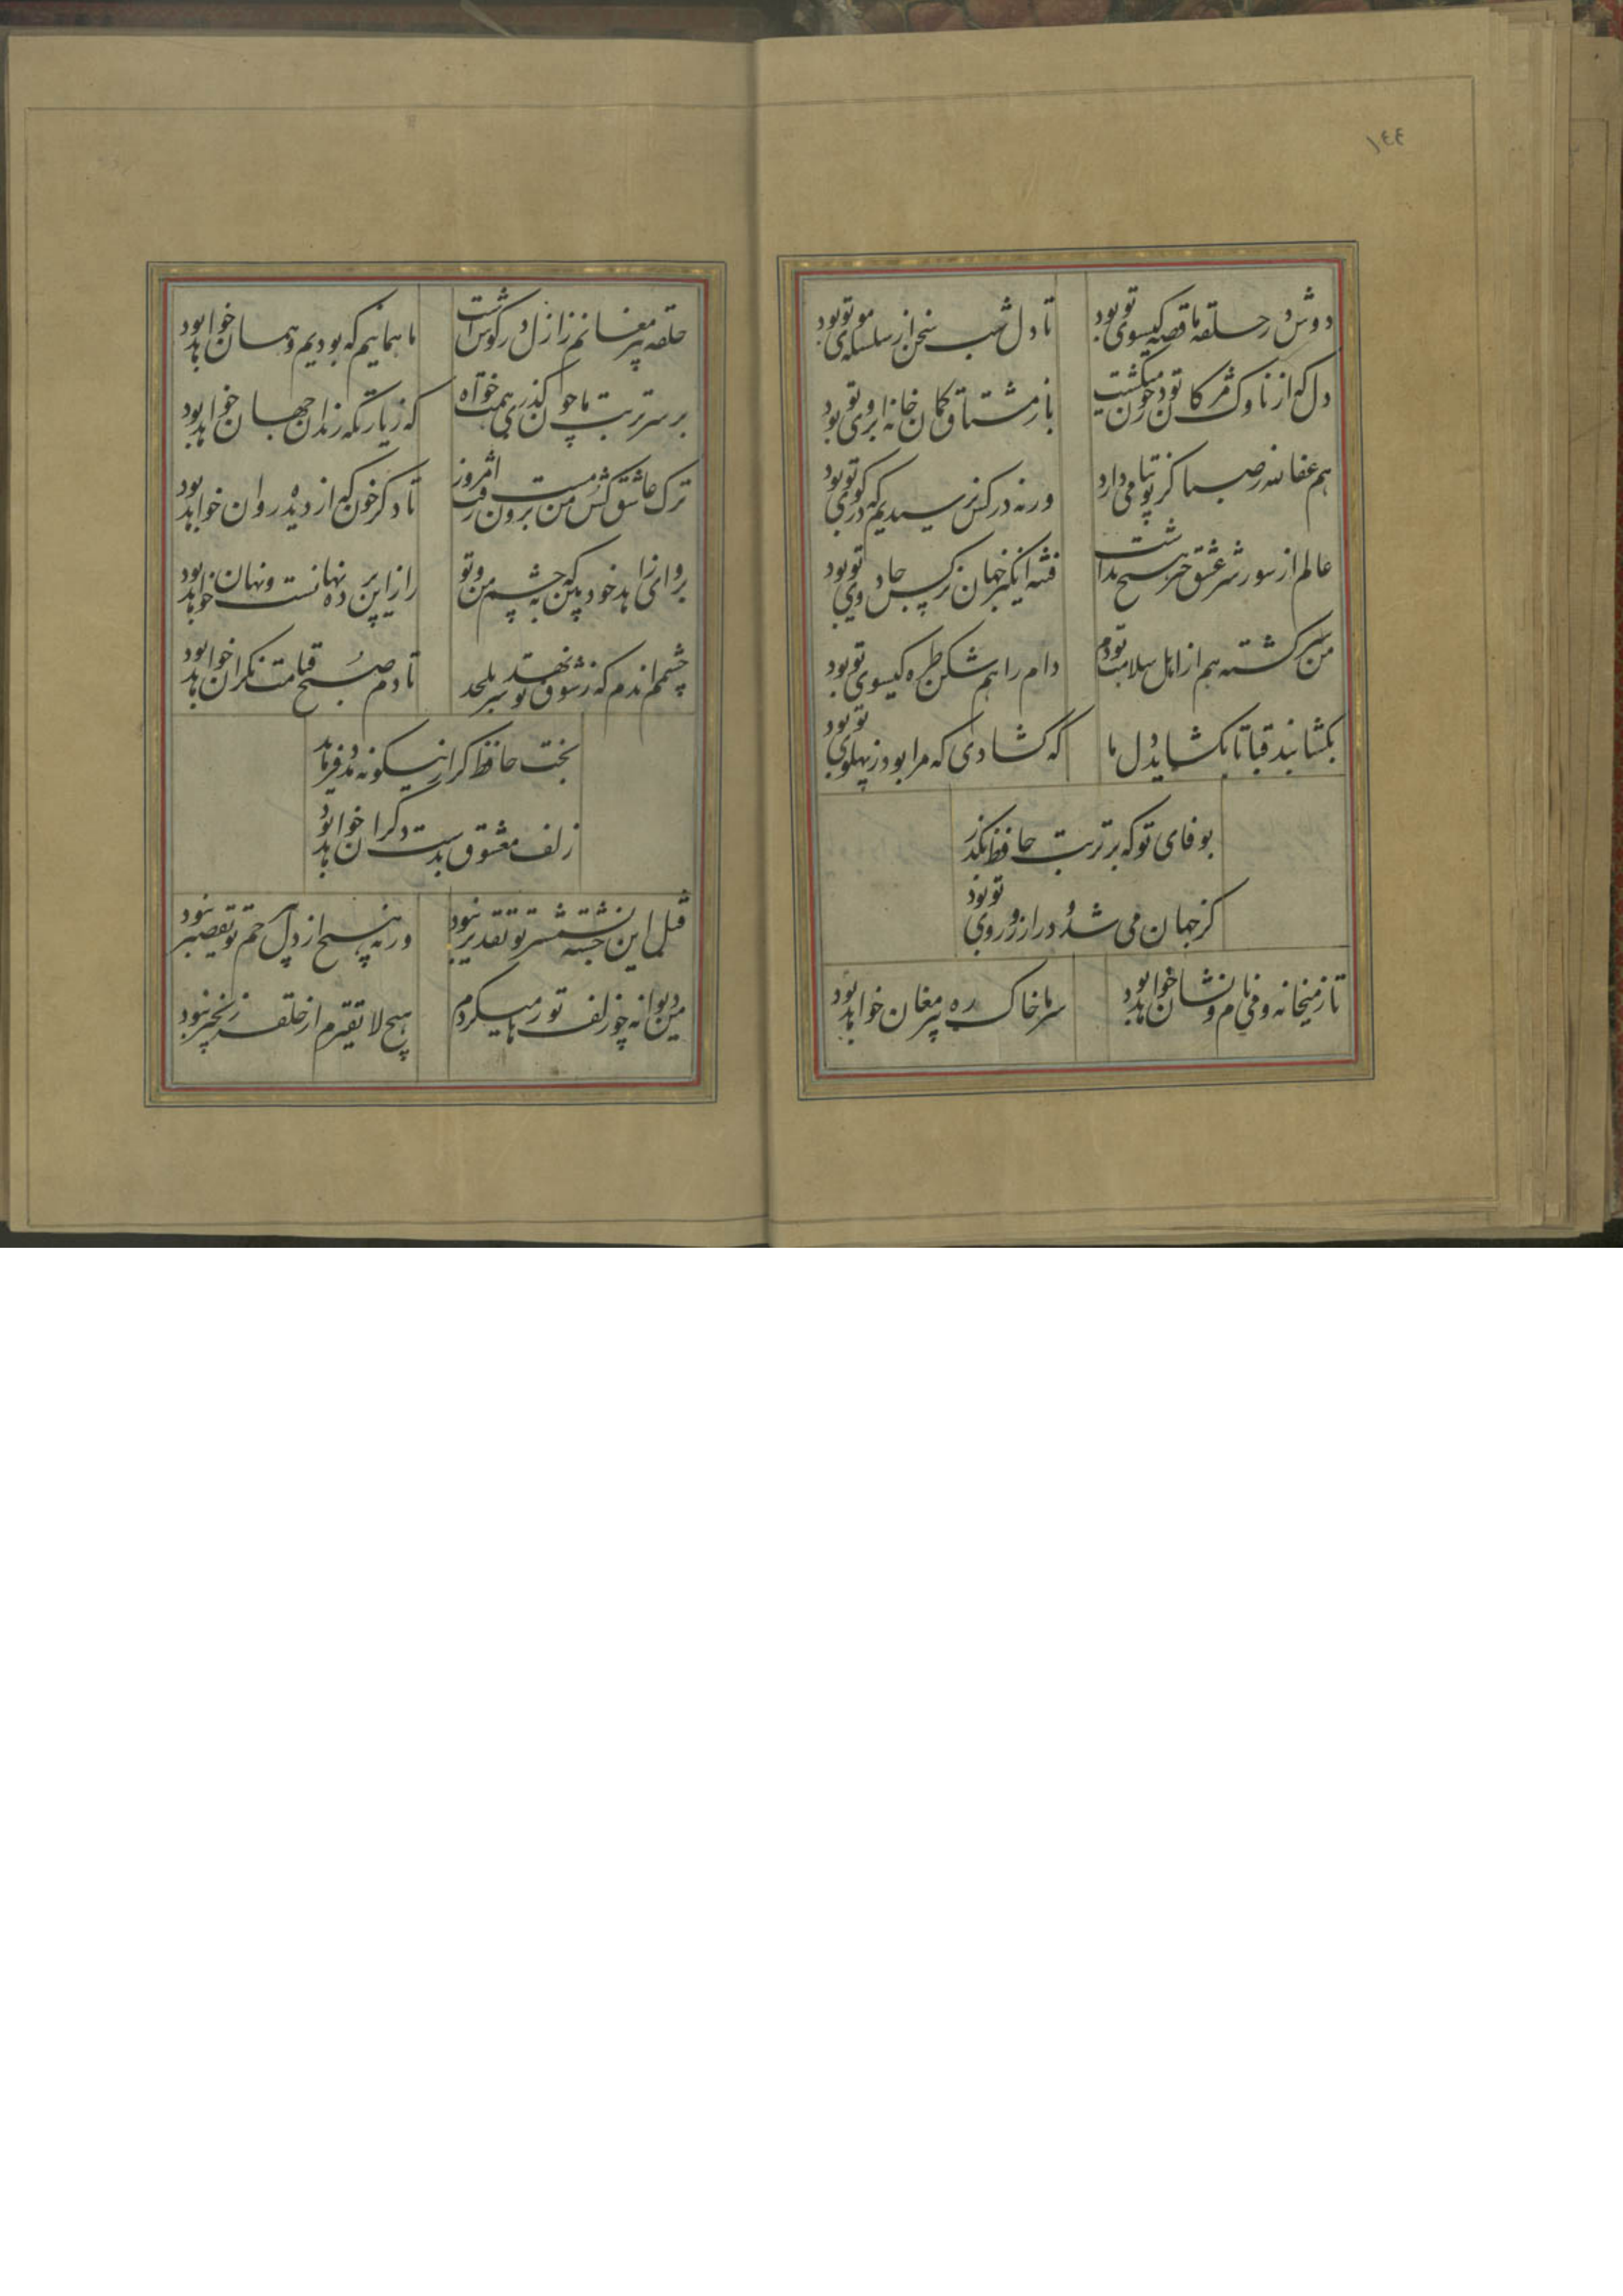 ١٤٤
دوش در حلقه ما قصه کیسوی تو بود
تا دل شب سخن از سلسله موی تو بود
دل که از ناوک مژکان تو در خون میکشت
باز مشتاق کمان خانه ابروی تو بود
هم عفا الله ز صبا کز تو پیامی دارد
ورنه در کس نرسیدیم که در کوی تو بود
عالم از شور و شر عشق خبر هیچ نداشت
فتنه انگیز جهان نرکس جادوی تو بود
من سرکشته هم از اهل سلامت بودم
دام راهم شکن طره کیسوی تو بود
بکشا بند قبا تا بکشاید دل ما
که کشادی که مرا بود ز پهلوی تو بود
بوفای تو که بر تربت حافظ بکذر
کز جهان می شد و در ارزوی روی تو بود
تا ز میخانه و می نام و نشان خواهد بود
سر ما خاک ره پیر مغان خواهد بود
حلقه پیر مغانم ز ازل در کوش است
ما همانیم که بودیم و همان خواهد بود
بر سر تربت ما چون کذری همت خواه
که زیارتکه رندان جهان خواهد بود
ترک عاشق کش من مست برون رفت امروز
تا دکر خون که از دیده روان خواهد بود
برو ای زاهد خودبین که به چشم من و تو
راز این پرده نهانست و نهان خواهد بود
چشمم اندم که ز شوق تو نهد سر بلحد
تا دم صبح قیامت نکران خواهد بود
بخت حافظ کر ازینکونه مدد فرماید
زلف معشوق بدست دکران خواهد بود
قتل این خسته بشمشیر تو تقدیر نبود
ورنه هیچ از دل بی رحم تو تقصیر نبود
من دیوانه چو زلف تو رها میکردم
هیچ لایقترم از حلقه زنجیر نبود